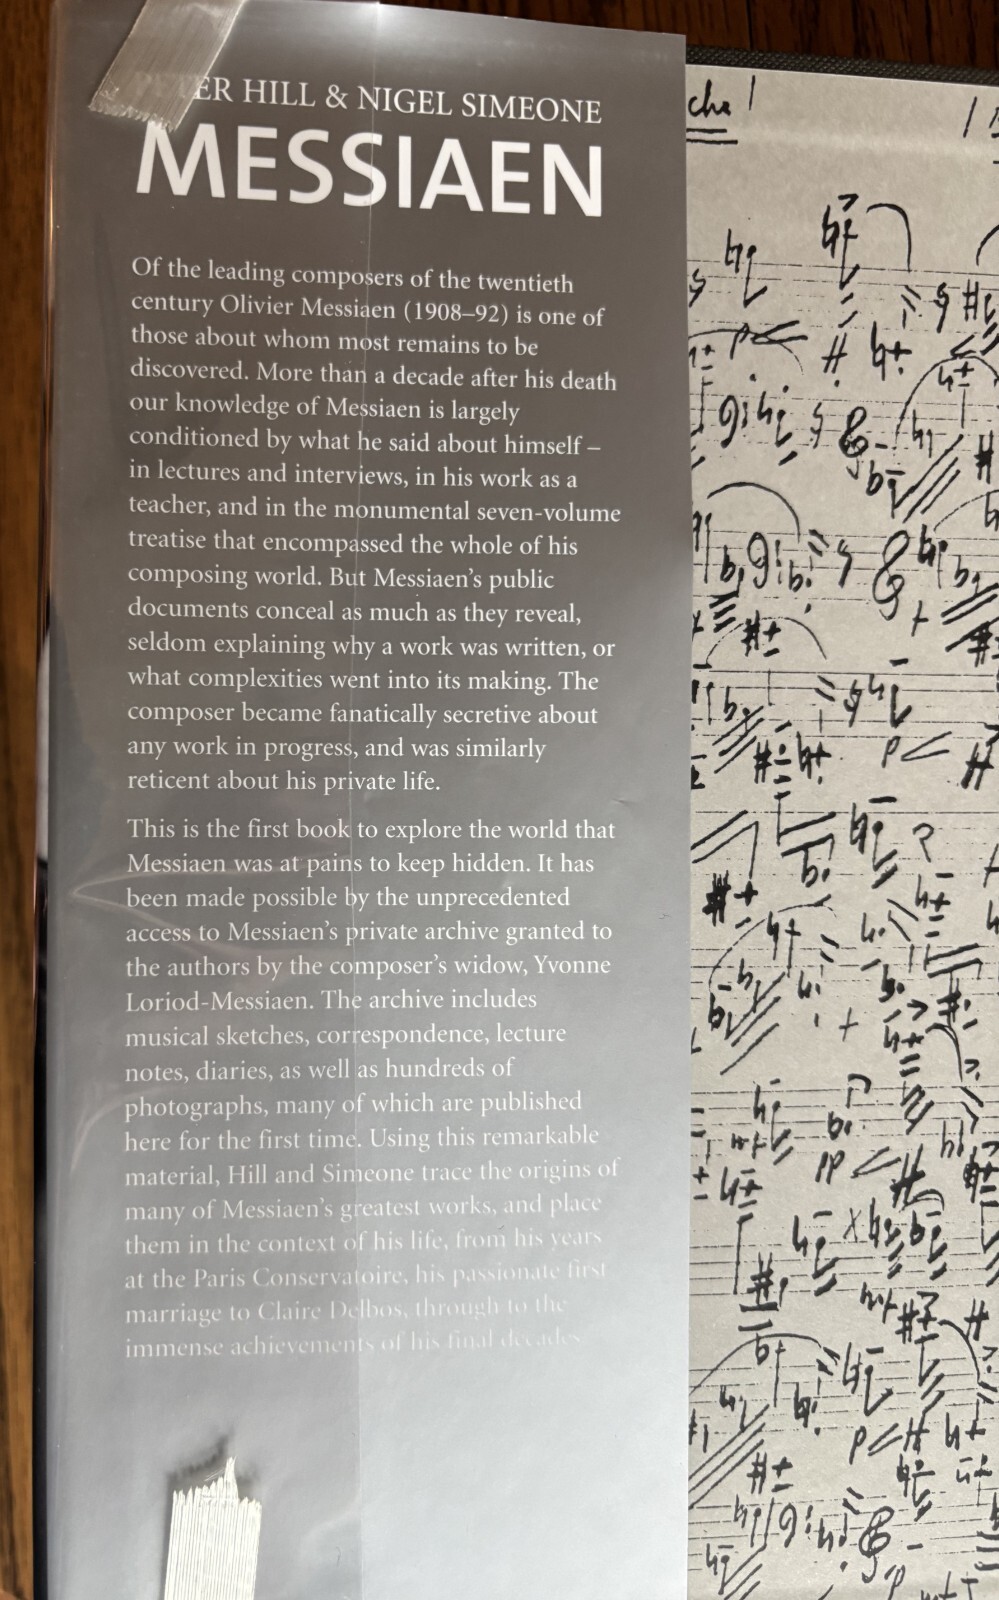 PETER HILL & NIGEL SIMEONE
MESSIAEN
Of the leading composers of the twentieth
century Olivier Messiaen (1908–92) is one of
those about whom most remains to be
discovered. More than a decade after his death
our knowledge of Messiaen is largely
conditioned by what he said about himself –
in lectures and interviews, in his work as a
teacher, and in the monumental seven-volume
treatise that encompassed the whole of his
composing world. But Messiaen's public
documents conceal as much as they reveal,
seldom explaining why a work was written, or
what complexities went into its making. The
composer became fanatically secretive about
any work in progress, and was similarly
reticent about his private life.
This is the first book to explore the world that
Messiaen was at pains to keep hidden. It has
been made possible by the unprecedented
access to Messiaen's private archive granted to
the authors by the composer's widow, Yvonne
Loriod-Messiaen. The archive includes
musical sketches, correspondence, lecture
notes, diaries, as well as hundreds of
photographs, many of which are published
here for the first time. Using this remarkable
material, Hill and Simeone trace the origins of
many of Messiaen's greatest works, and place
them in the context of his life, from his years
at the Paris Conservatoire, his passionate first
marriage to Claire Delbos, through to the
immense achievements of his final decades.